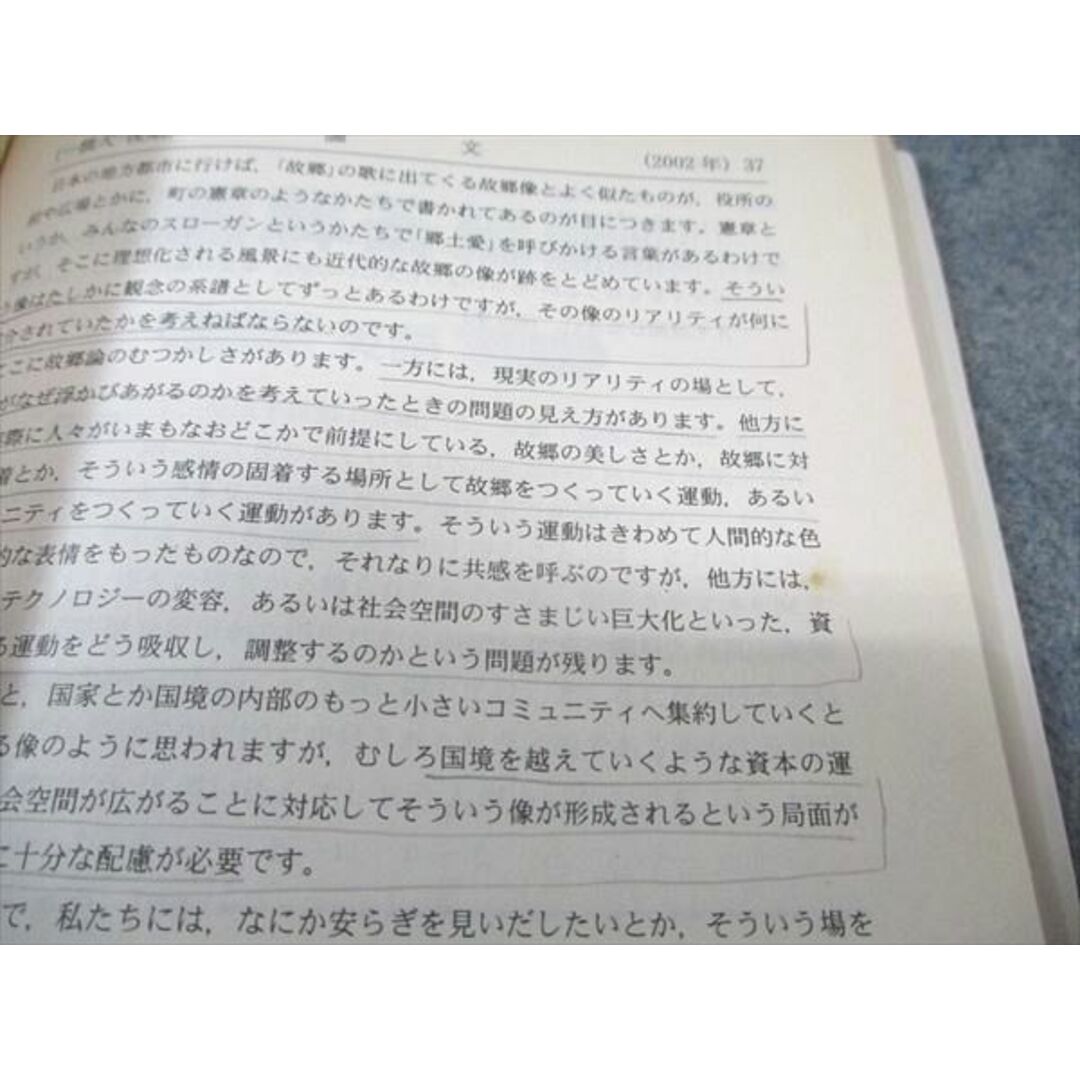 文 (2002年) 37
日本の地方都市に行けば,「故郷」の歌に出てくる故郷像とよく似たものが, 役所の
や広場とかに, 町の憲章のようなかたちで書かれてあるのが目につきます。憲章と
いうか, みんなのスローガンというかたちで「郷土愛」を呼びかける言葉があるわけで
すが, そこに理想化される風景にも近代的な故郷の像が跡をとどめています。そうい
像はたしかに観念の系譜としてずっとあるわけですが, その像のリアリティが何に
介されていたかを考えねばならないのです。
こに故郷論のむつかしさがあります。一方には, 現実のリアリティの場として,
がなぜ浮かびあがるのかを考えていったときの問題の見え方があります。他方に
際に人々がいまもなおどこかで前提にしている, 故郷の美しさとか, 故郷に対
着とか, そういう感情の固着する場所として故郷をつくっていく運動, あるい
ニティをつくっていく運動があります。そういう運動はきわめて人間的な色
的な表情をもったものなので, それなりに共感を呼ぶのですが, 他方には,
テクノロジーの変容, あるいは社会空間のすさまじい巨大化といった, 資
る運動をどう吸収し, 調整するのかという問題が残ります。
と, 国家とか国境の内部のもっと小さいコミュニティへ集約していくと
る像のように思われますが, むしろ国境を越えていくような資本の運
会空間が広がることに対応してそういう像が形成されるという局面が
に十分な配慮が必要です。
で, 私たちには, なにか安らぎを見いだしたいとか, そういう場を